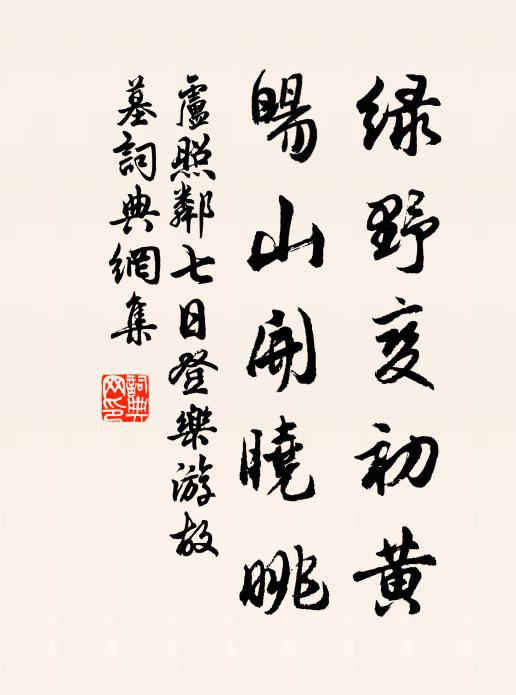 緑野变初黄
暘山開曉眺
盧照鄰七日登樂游故
墓詞典網集
詞典
网印